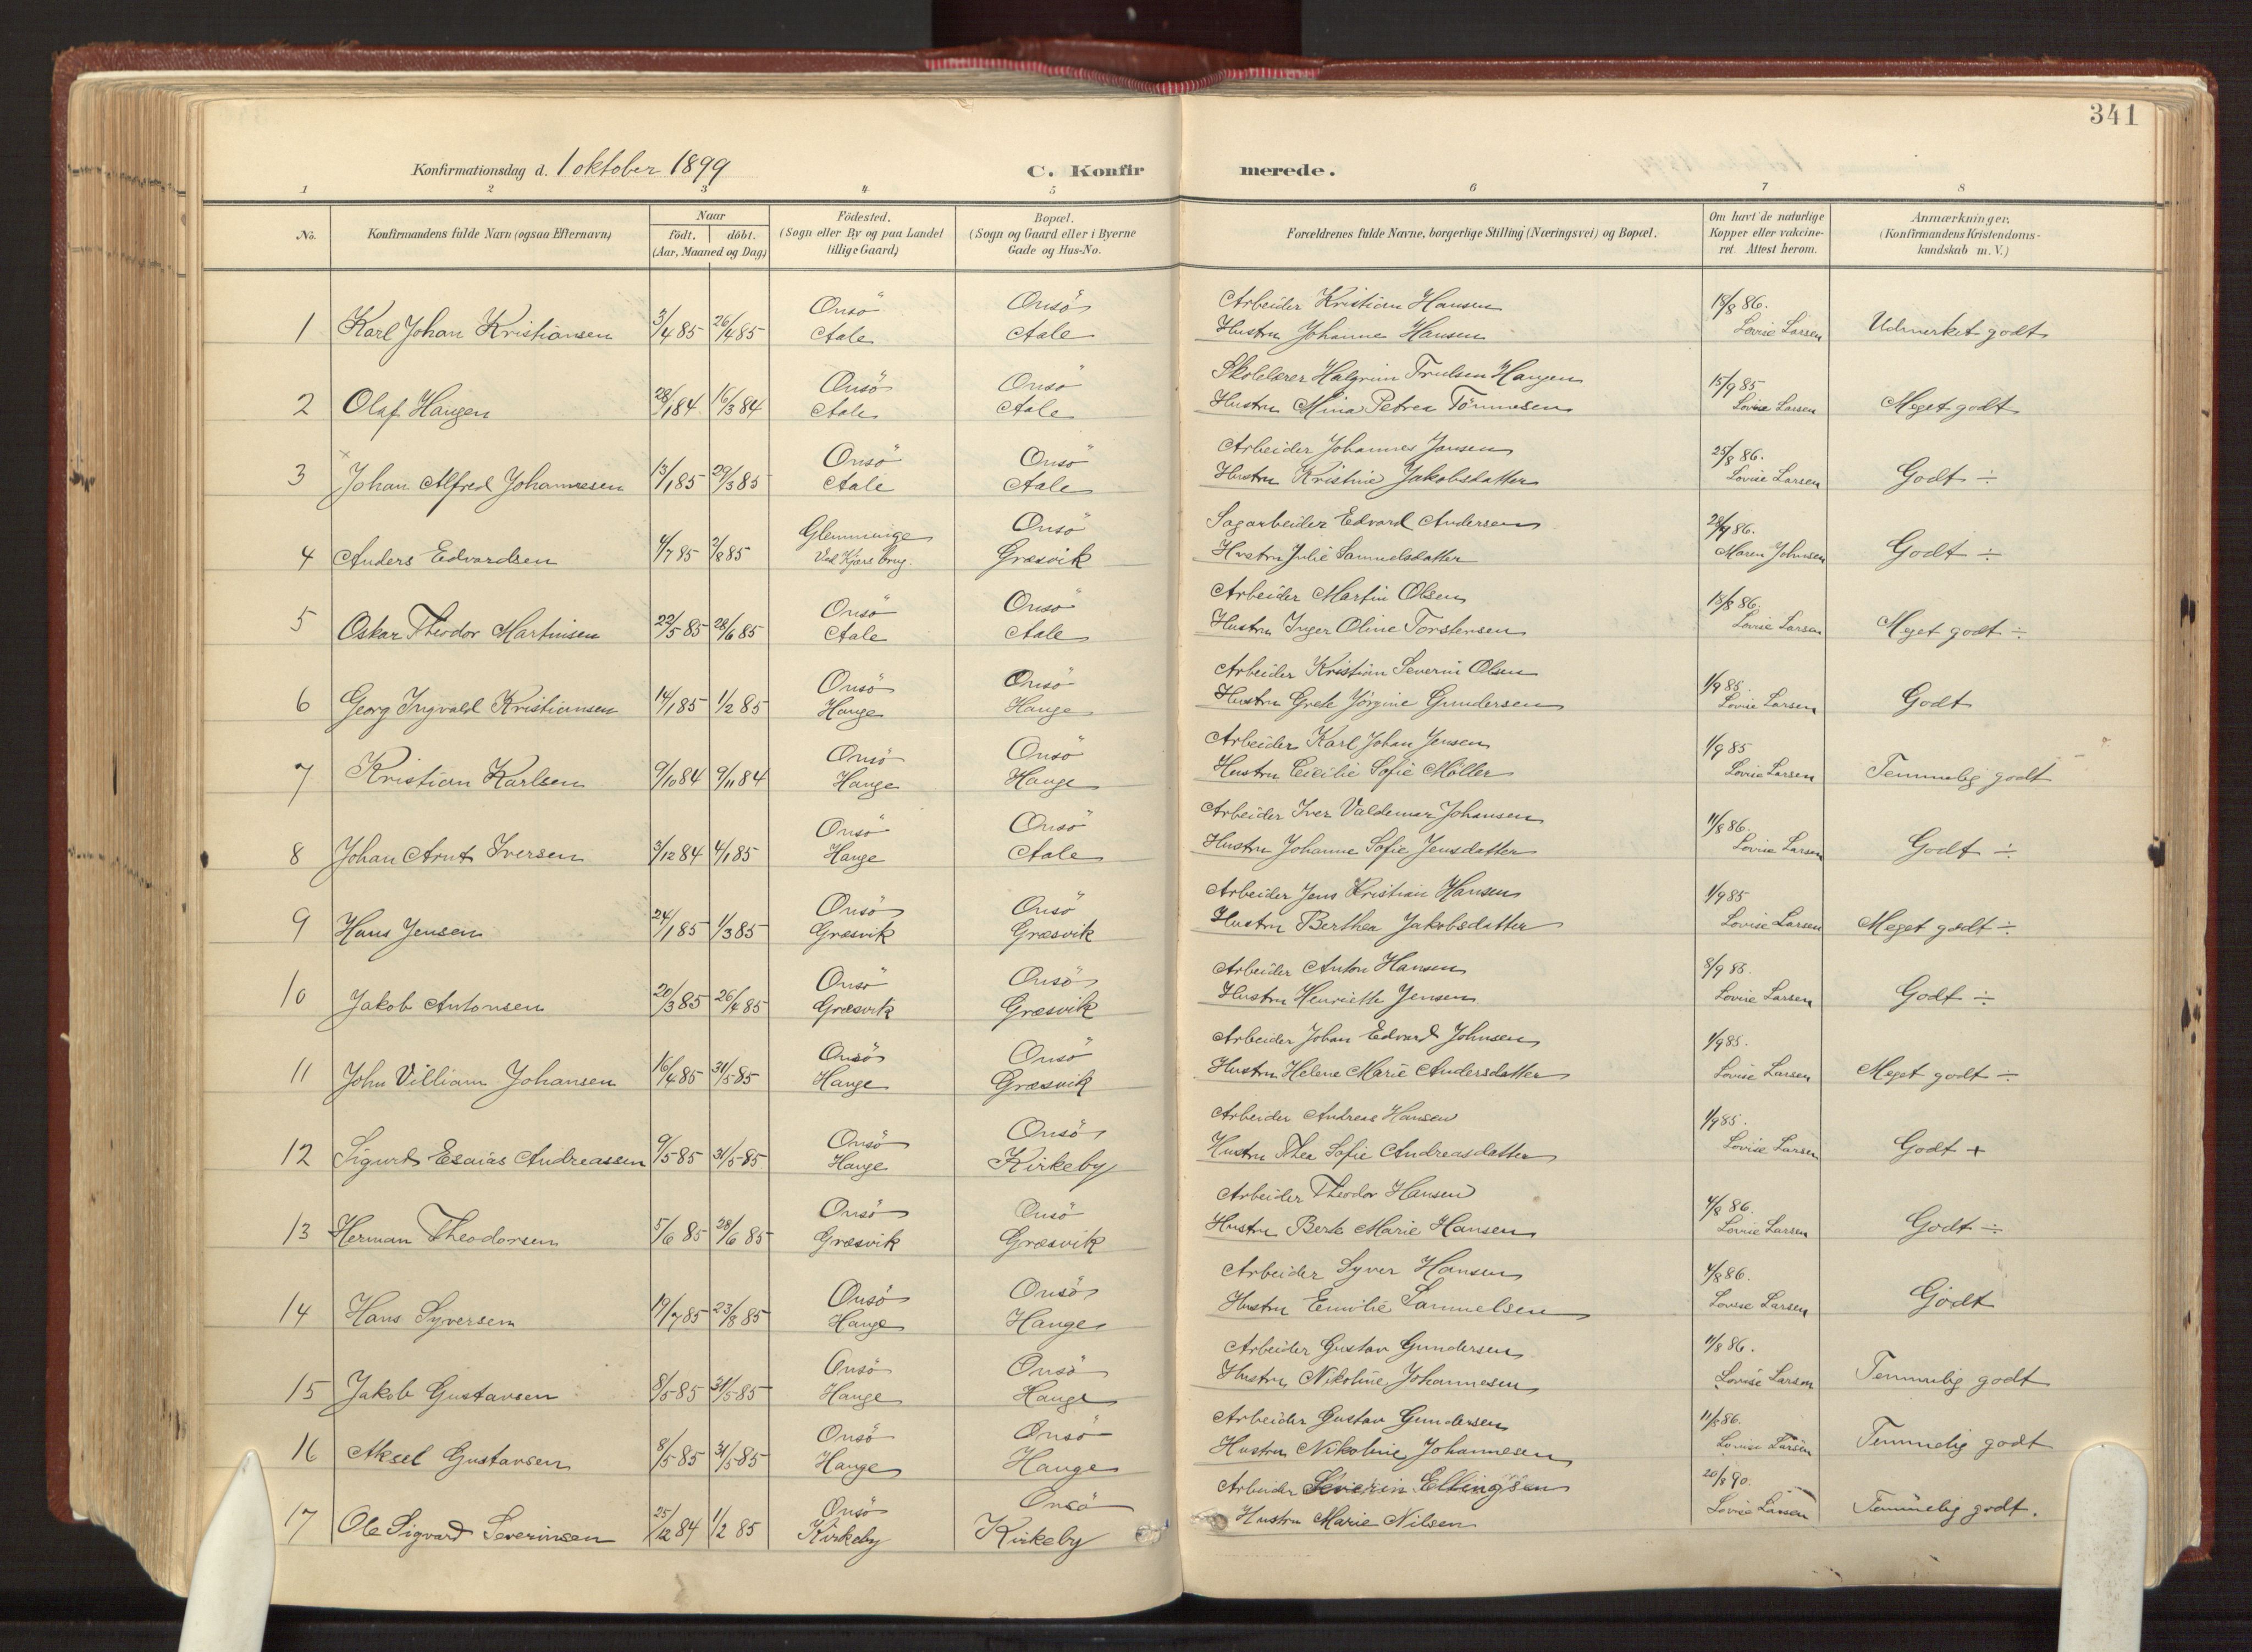 341
Konfirmationsdag d. 1 oktober 1899 C. Konfirmerede.
1 2 3 4 5 6 7 8
No. Konfirmandens fulde Navn (ogsaa Efternavn) Naar födt. döbt. (Aar, Maaned og Dag) Födested. (Sogn eller By og paa Landet tillige Gaard) Bopæl. (Sogn og Gaard eller i Byerne Gade og Hus-No. Forældrenes fulde Navne, borgerlige Stilling (Næringsvei) og Bopæl. Om havt de naturlige Kopper eller vakcineret. Attest herom. Anmærkninger. (Konfirmandens Kristendomskundskab m. V.)
Onsö Onsö Arbeider Kristian Hansen 18/8 86.
1 Karl Johan Kristiansen 3/4 85 26/4 85 Aale Aale Hustru Johanne Hansen Lovise Larsen Udmerket godt
Onsö Onsö Skolelærer Halgrim Trulsen Haugen 15/9 85
2 Olaf Haugen 28/1 84 16/3 84 Aale Aale Hustru Mina Petrea Tönnesen Lovise Larsen Meget godt
Onsö Onsö Arbeider Johannes Jansen 25/8 86.
3 Johan Alfred Johannesen 13/1 85 29/3 85 Aale Aale Hustru Kristine Jakobsdatter Lovise Larsen Godt ÷
Glemminge Onsö Sagarbeider Edvard Andersen 28/9 86.
4 Anders Edvardsen 4/7 85 2/8 85 Ved Kjærs brug. Græsvik Hustru Julie Samuelsdatter Maren Johnsen Godt ÷
Onsö Onsö Arbeider Martin Olsen 18/8 86.
5 Oskar Theodor Martinsen 22/5 85 28/6 85 Aale Aale Hustru Inger Oline Torstensen Lovise Larsen Meget godt ÷
Onsö Onsö Arbeider Kristian Severin Olsen 1/9 85.
6 Georg Ingvald Kristiansen 14/1 85 1/2 85 Hauge Hauge Hustru Grete Jörgine Gundersen Lovise Larsen Godt
Onsö Onsö Arbeider Karl Johan Jensen 1/9 85
7 Kristian Karlsen 9/10 84 9/11 84 Hauge Hauge Hustru Cecilie Sofie Möller Lovise Larsen Temmelig godt
Onsö Onsö Arbeider Iver Valdemar Johansen 11/8 86.
8 Johan Arnt Iversen 3/12 84 4/1 85 Hauge Aale Hustru Johanne Sofie Jensdatter Lovise Larsen Godt ÷
Onsö Onsö Arbeider Jens Kristian Hansen 1/9 85
9 Hans Jensen 24/1 85 1/3 85 Græsvik Græsvik Hustru Berthea Jakobsdatter Lovise Larsen Meget godt ÷
Onsö Onsö Arbeider Anton Hansen 8/9 85.
10 Jakob Antonsen 20/3 85 26/4 85 Græsvik Græsvik Hustru Henriette Jensen Lovise Larsen Godt ÷
Onsö Onsö Arbeider Johan Edvard Johnsen 1/9 85.
11 John Villiam Johansen 16/4 85 31/5 85 Hauge Græsvik Hustru Helene Marie Andersdatter Lovise Larsen Meget godt ÷
Onsö Onsö Arbeider Andreas Hansen 1/9 85.
12 Sigurd Esaias Andreassen 9/5 85 31/5 85 Hauge Kirkeby Hustru Thea Sofie Andreasdatter Lovise Larsen Godt +
Onsö Onsö Arbeider Theodor Hansen 4/8 86.
13 Herman Theodorsen 5/6 85 28/6 85 Græsvik Græsvik Hustru Berte Marie Hansen Lovise Larsen Godt ÷
Onsö Onsö Arbeider Syver Hansen 4/8 86.
14 Hans Syversen 19/7 85 23/8 85 Hauge Hauge Hustru Emilie Samuelsen Lovise Larsen Godt
Onsö Onsö Arbeider Gustav Gundersen 11/8 86.
15 Jakob Gustavsen 8/5 85 31/5 85 Hauge Hauge Hustru Nikoline Johannesen Lovise Larsen Temmelig godt
Onsö Onsö Arbeider Gustav Gundersen 11/8 86.
16 Aksel Gustavsen 8/5 85 31/5 85 Hauge Hauge Hustru Nikoline Johannesen Lovise Larsen Temmelig godt
Onsö Onsö Arbeider Severin Ellingsen 20/8 90.
17 Ole Sigvard Severinsen 25/12 84 1/2 85 Kirkeby Kirkeby Hustru Marie Nilsen Lovise Larsen Temmelig godt.